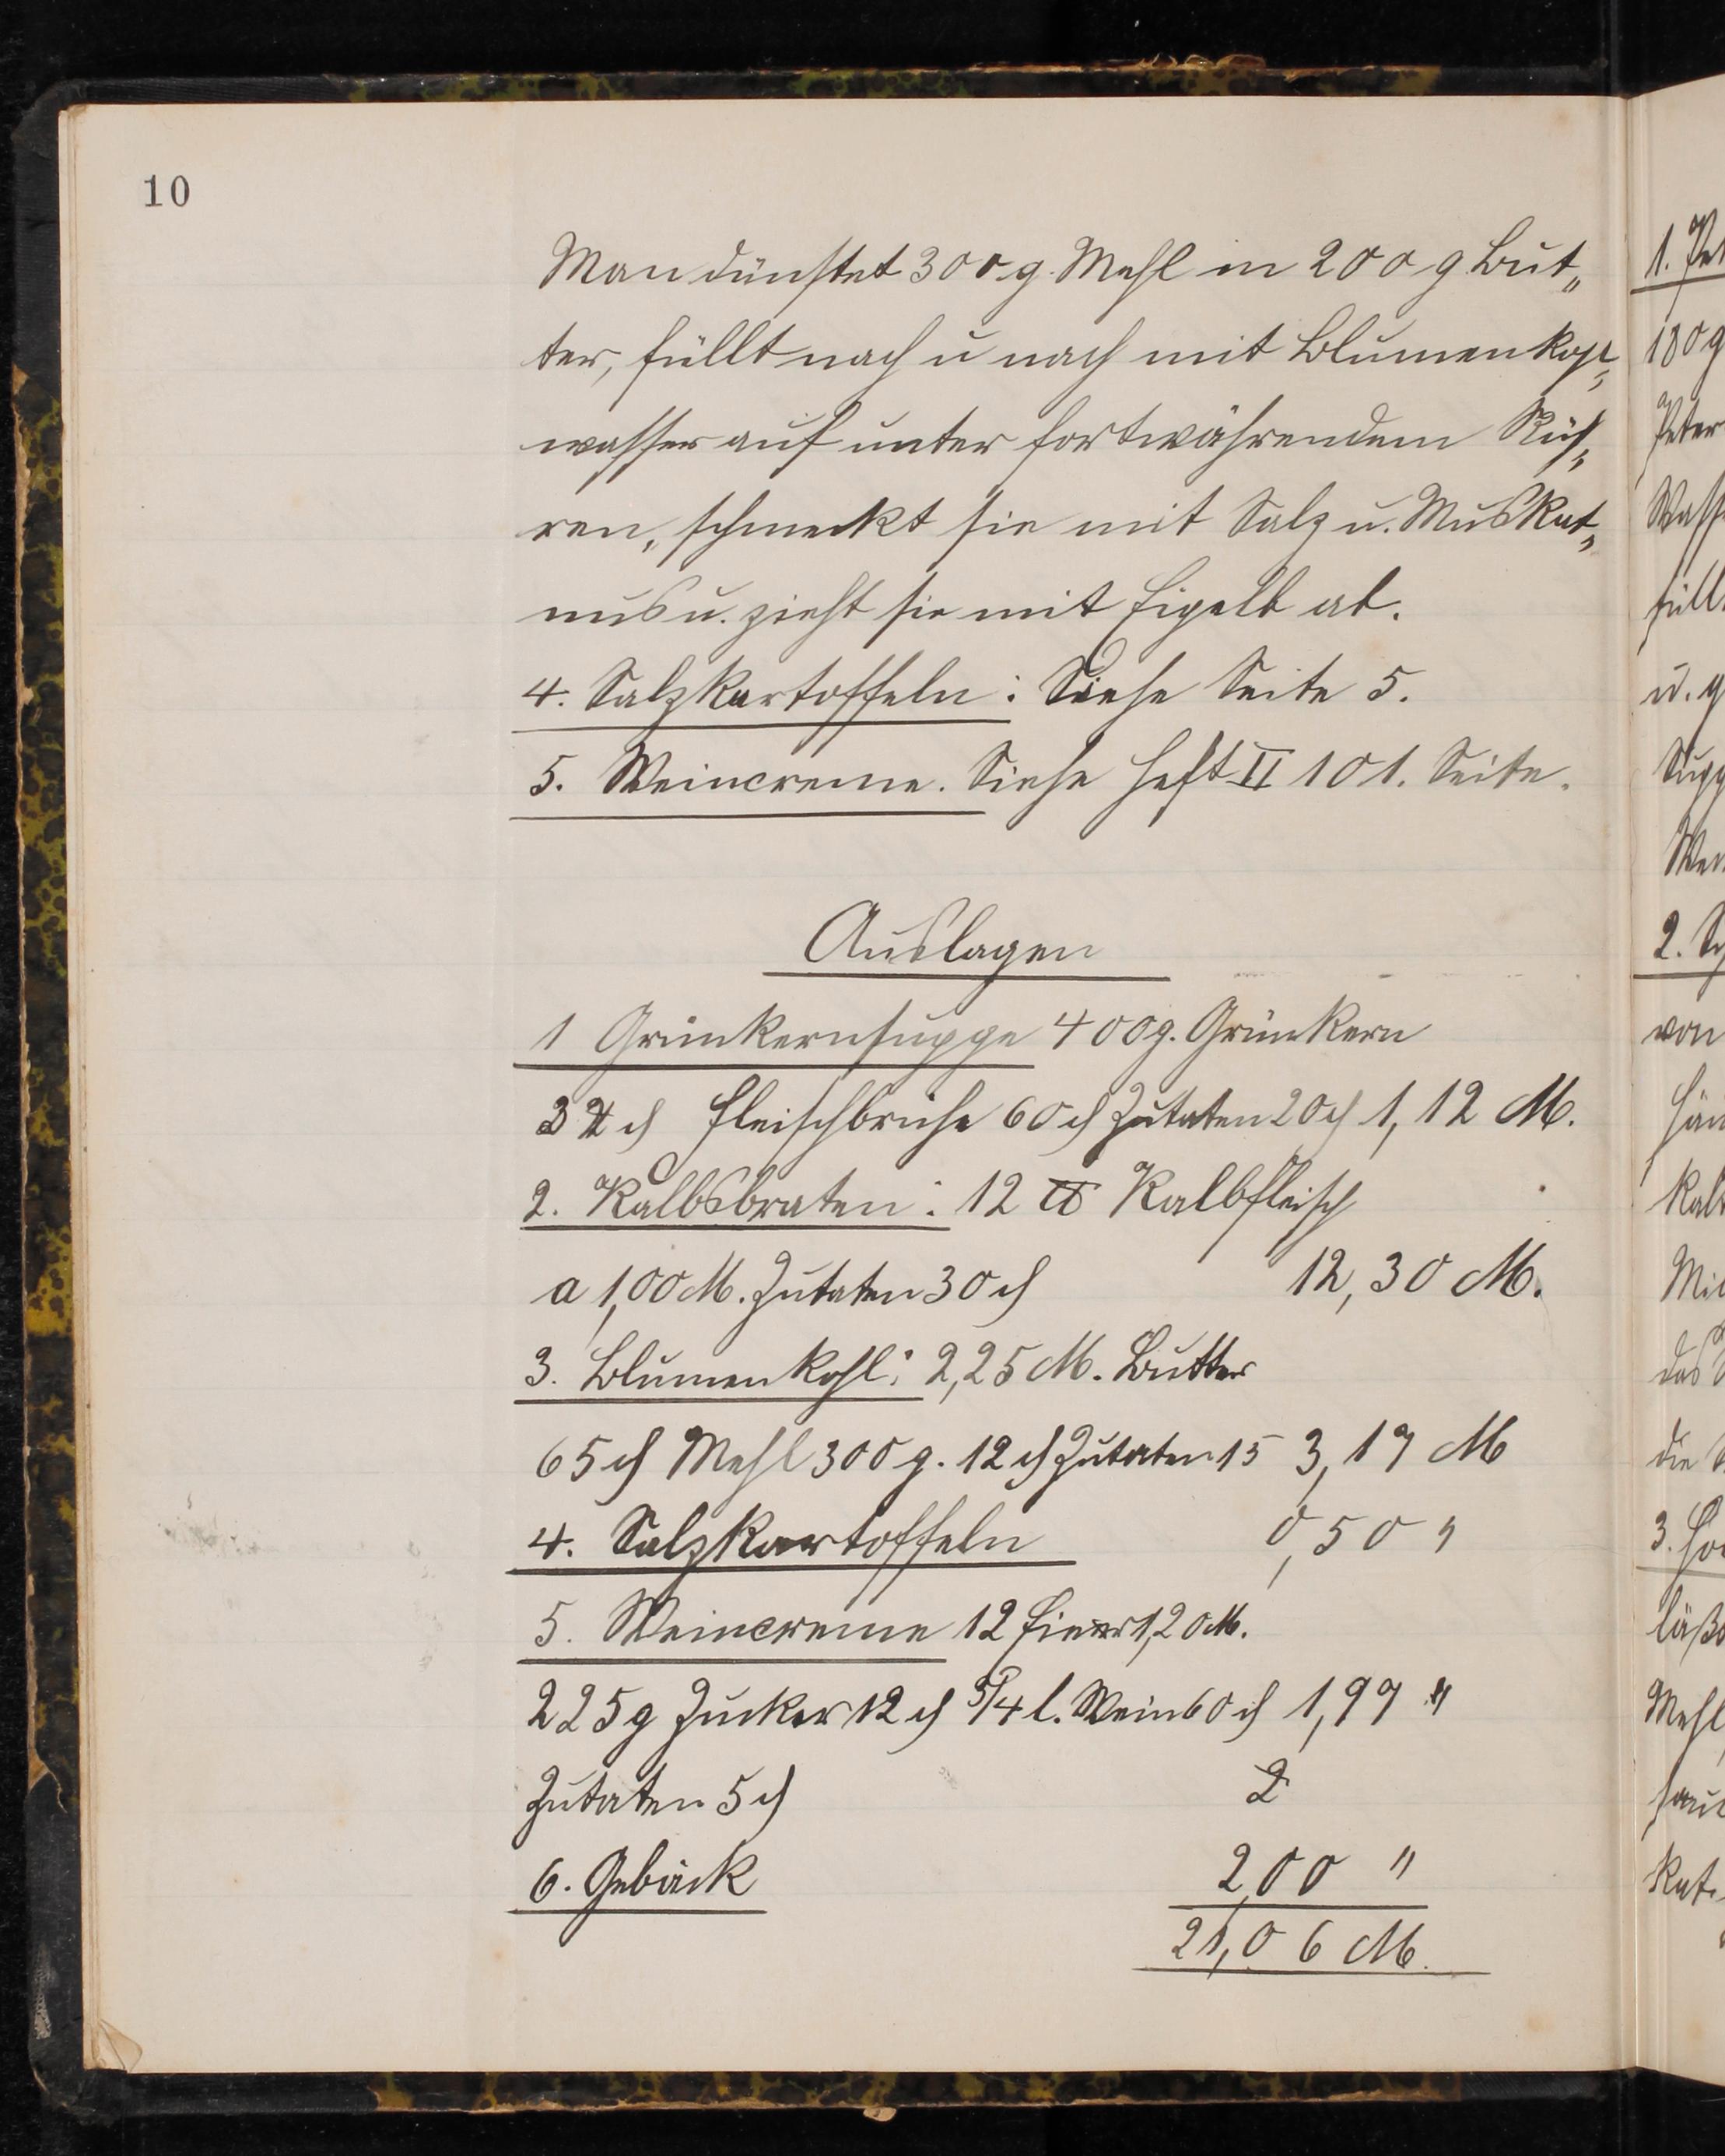 10
Man dünstet 300 g Mehl in 200 g But„
ter, füllt nach u nach mit Blumenkohl„
wasser auf unter fortwährendem Rüh„
ren, schmeckt sie mit Salz u. Muskat„
nus u. zieht sie mit Eigelb ab.
4. Salzkartoffeln: Siehe Seite 5.
5. Weincreme. Siehe Heft II 101. Seite.
Auslagen
1 Grünkernsuppe 400g. Grünkern
32 ₰ Fleischbrühe 60 ₰ Zutaten 20 ₰ 1,12 M.
2. Kalbsbraten: 12 ℔ Kalbfleisch
a 1,00 M. Zutaten 30 ₰ 12,30 M.
3. Blumenkohl: 2,25 M. Butter
65 ₰ Mehl 300 g. 12 ₰ Zutaten 15 3,17 M
4. Salzkartoffeln 0,50 "
5. Weincreme 12 Eier 1,20 M.
225 g Zucker 12 ₰ 3/4 l. Wein 60 ₰ 1,97 "
Zutaten 5 ₰ 2
6. Gebäck 2,00 "
21,06 M.
1. Pet
180 g
Peter
Wass
füll
u. g
Supp
2. Sch
von
Kalb
das
die
3.
Mehl